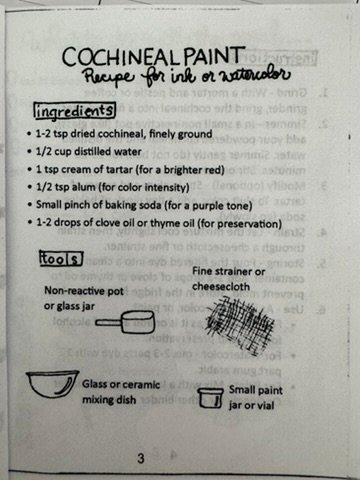 COCHINEAL PAINT
Recipe for ink or watercolor
ingredients
• 1-2 tsp dried cochineal, finely ground
• 1/2 cup distilled water
• 1 tsp cream of tartar (for a brighter red)
• 1/2 tsp alum (for color intensity)
• Small pinch of baking soda (for a purple tone)
• 1-2 drops of clove oil or thyme oil (for preservation)
tools
Non-reactive pot
or glass jar
Fine strainer or
cheesecloth
Glass or ceramic
mixing dish
Small paint
jar or vial
3